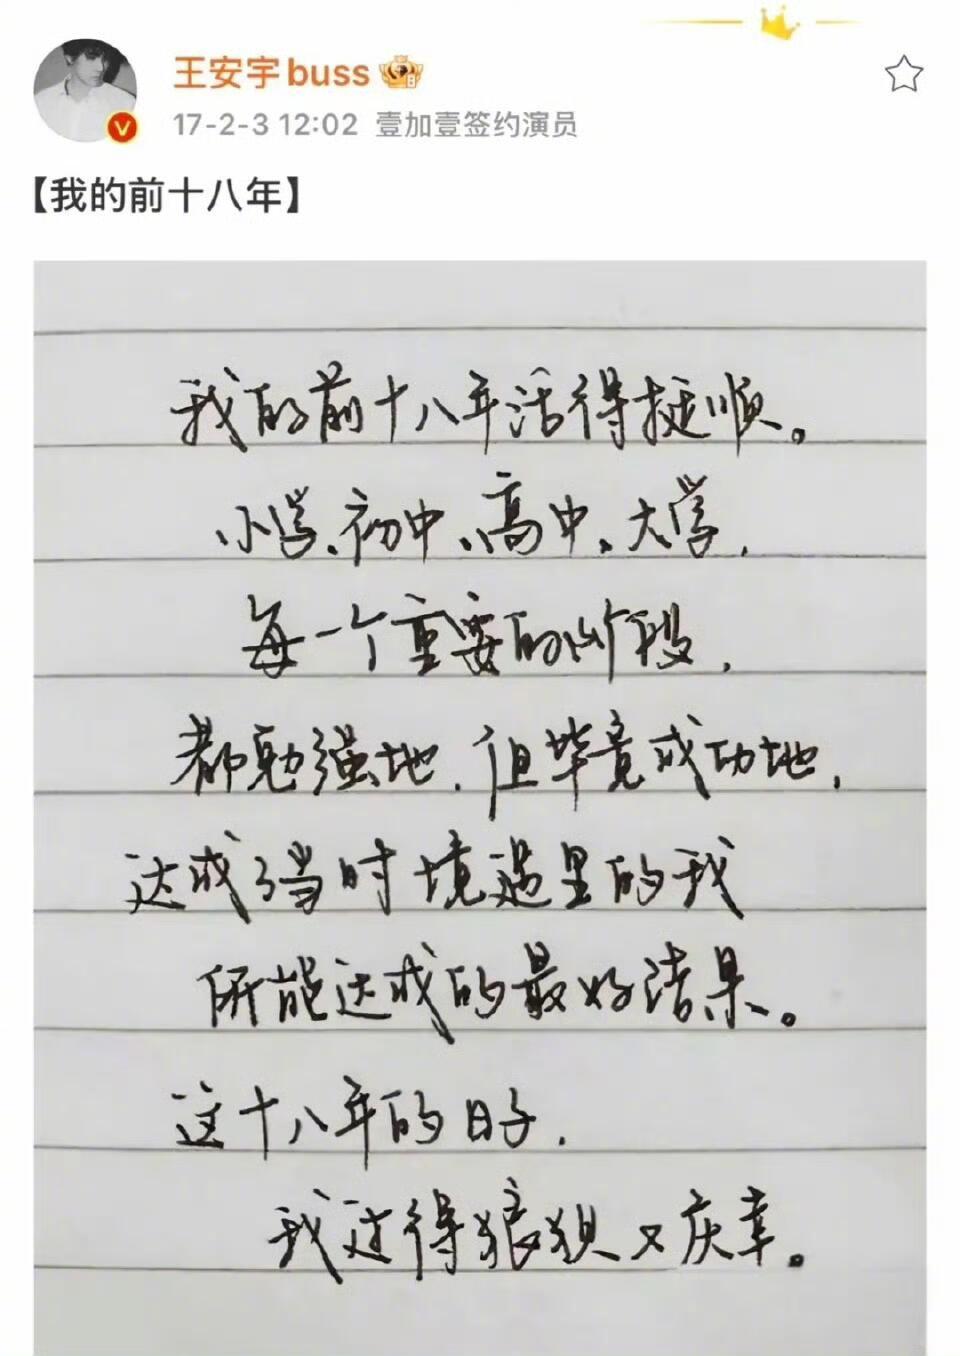 王安宇buss
17-2-3 12:02 壹加壹签约演员
【我的前十八年】
我的前十八年活得挺顺。
小学、初中、高中、大学，
每一个重要的阶段，
都勉强地，但毕竟成功地，
达成了当时境遇里的我
所能达成的最好结果。
这十八年的日子，
我过得狼狈又庆幸。